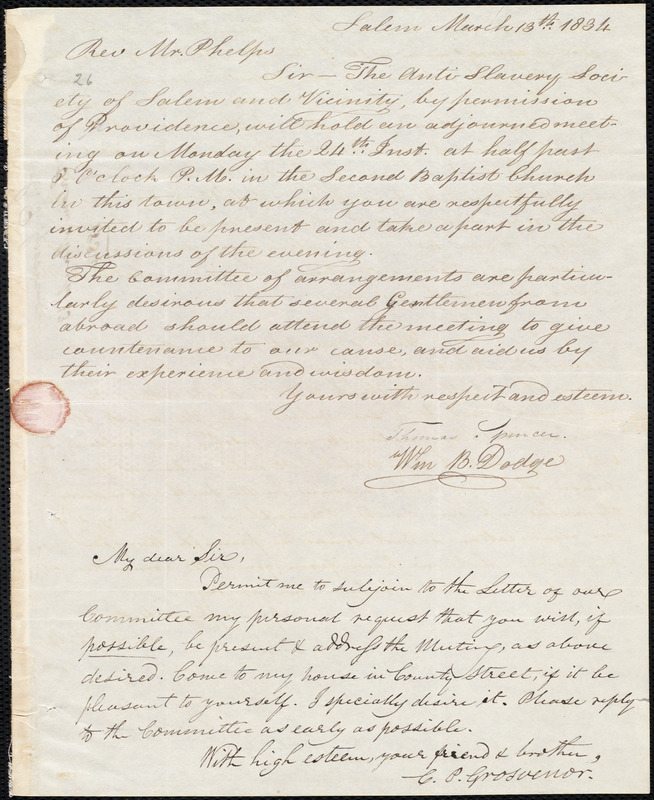 Salem March 13th. 1834
Rev Mr. Phelps
26
Sir — The Anti Slavery Soci-
ety of Salem and Vicinity, by permission
of Providence, will hold an adjourned meet-
ing on Monday the 24th Inst. at half past
6 O'clock P.M. in the Second Baptist Church
in this town, at which you are respectfully
invited to be present and take a part in the
discussions of the evening.
The Committee of arrangements are particu-
larly desirous that several Gentlemen from
abroad should attend the meeting to give
countenance to our cause, and aid us by
their experience and wisdom.
Yours with respect and esteem.
Thomas Spencer.
Wm B. Dodge
My dear Sir,
Permit me to subjoin to the Letter of our
Committee my personal request that you will, if
possible, be present & address the Meeting, as above
desired. Come to my house in County Street, if it be
pleasant to yourself. I specially desire it. Please reply
to the Committee as early as possible.
With high esteem, your friend & brother,
C. P. Grosvenor.